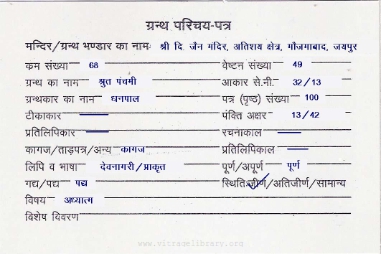 ग्रन्थ परिचय-पत्र
मन्दिर/ग्रन्थ भण्डार का नामः श्री दि. जैन मंदिर, अतिशय क्षेत्र, मौजमाबाद, जयपुर
क्रम संख्या 68 वेष्टन संख्या 49
ग्रन्थ का नाम श्रुत पंचमी आकार से.मी. 32/13
ग्रन्थकार का नाम धनपाल पत्र (पृष्ठ) संख्या 100
टीकाकार पंक्ति अक्षर 13/42
प्रतिलिपिकार रचनाकाल
कागज/ताड़पत्र/अन्य कागज प्रतिलिपिकाल
लिपि व भाषा देवनागरी/प्राकृत पूर्ण/अपूर्ण पूर्ण
गद्य/पद्य पद्य स्थिति जीर्ण/अतिजीर्ण/सामान्य
विषय अध्यात्म
विशेष विवरण
www.vitraglibrary.org